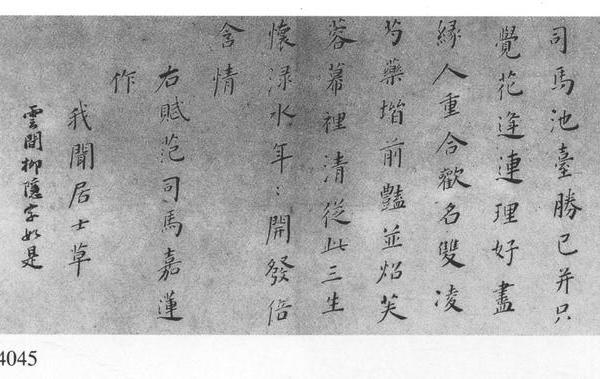 司馬池臺勝已并只
覺花逢連理好盡
緣人重合歡名雙凌
芍藥堦前豔並焰芙
蓉幕裡清從此三生
懷渌水年〻開發倍
含情
右賦范司馬嘉蓮
作
我聞居士草
雲間柳隱字如是
4045